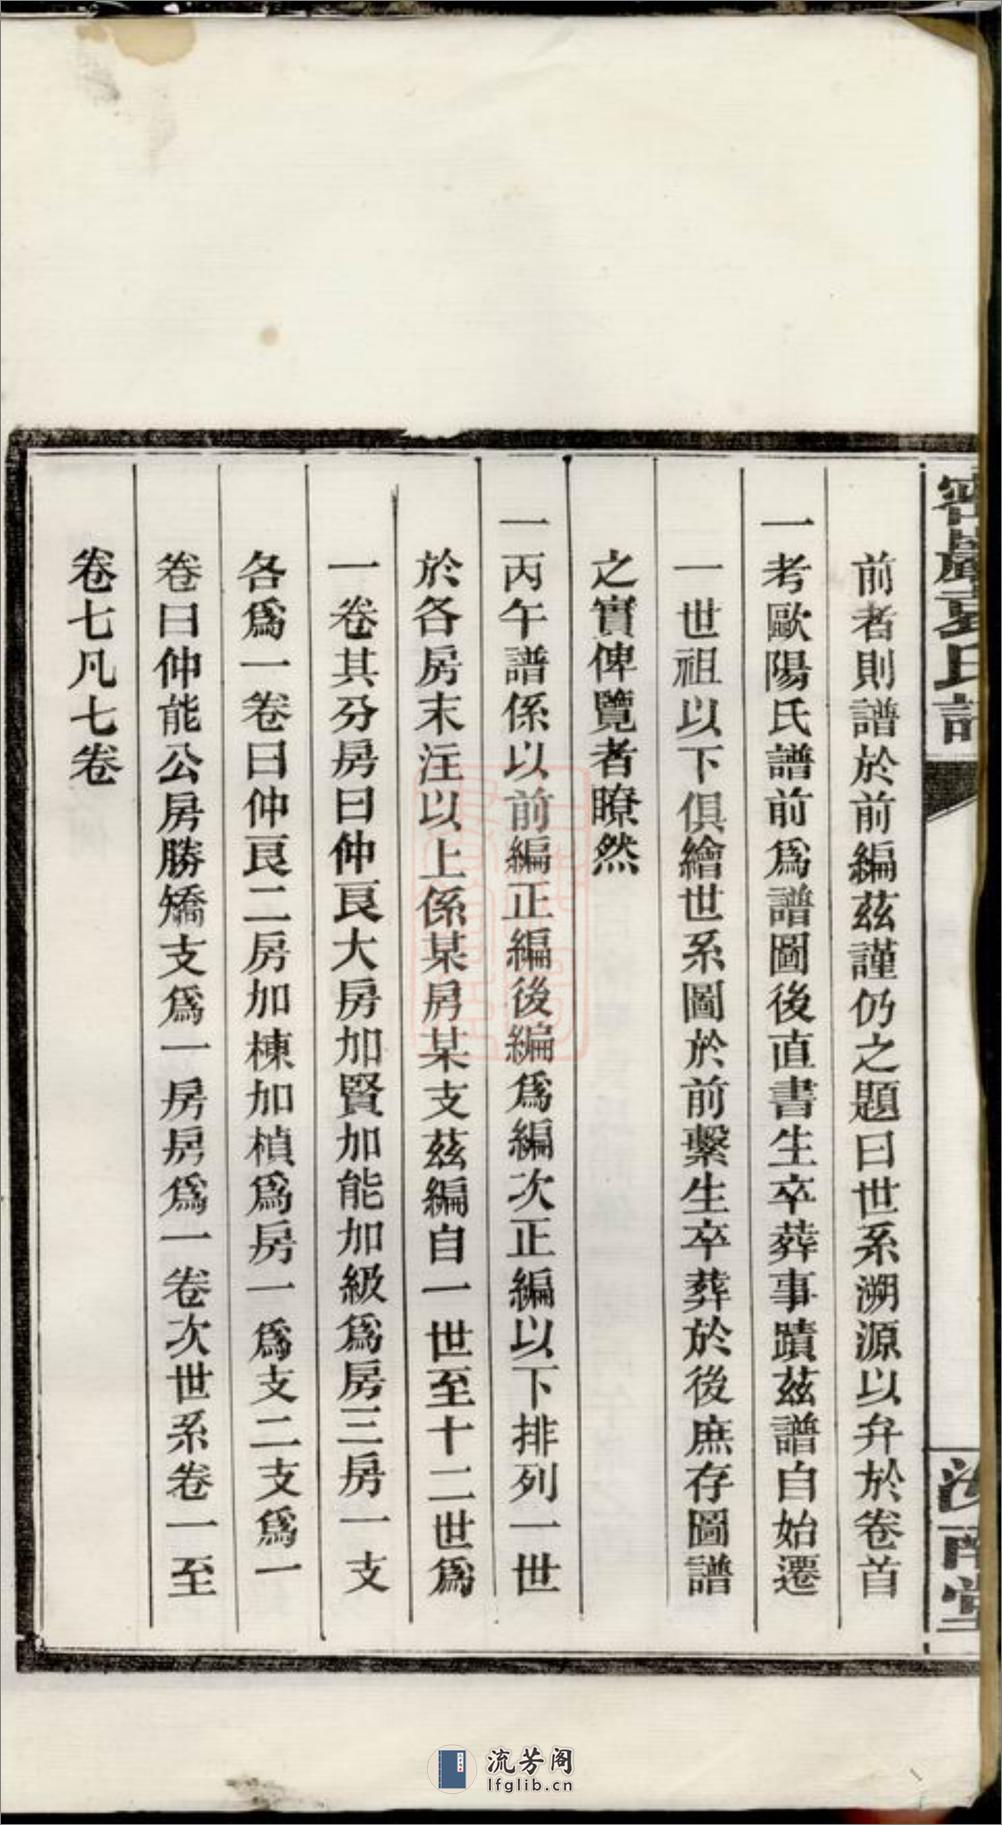 前者則譜於前編茲謹仍之題曰世系溯源以弁於卷首
一考歐陽氏譜前爲譜圖後直書生卒葬事蹟茲譜自始遷
一世祖以下俱繪世系圖於前繫生卒葬於後庶存圖譜
之實俾覽者瞭然
一丙午譜係以前編正編後編爲編次正編以下排列一世
於各房末注以上係某房某支茲編自一世至十二世爲
一卷其分房曰仲良大房加賢加能加級爲房三房一支
各爲一卷曰仲良二房加棟加楨爲房一爲支二支爲一
卷曰仲能公房勝矯支爲一房房爲一卷次世系卷一至
卷七凡七卷
袁氏譜
汝南堂
流芳阁
lfglib.cn